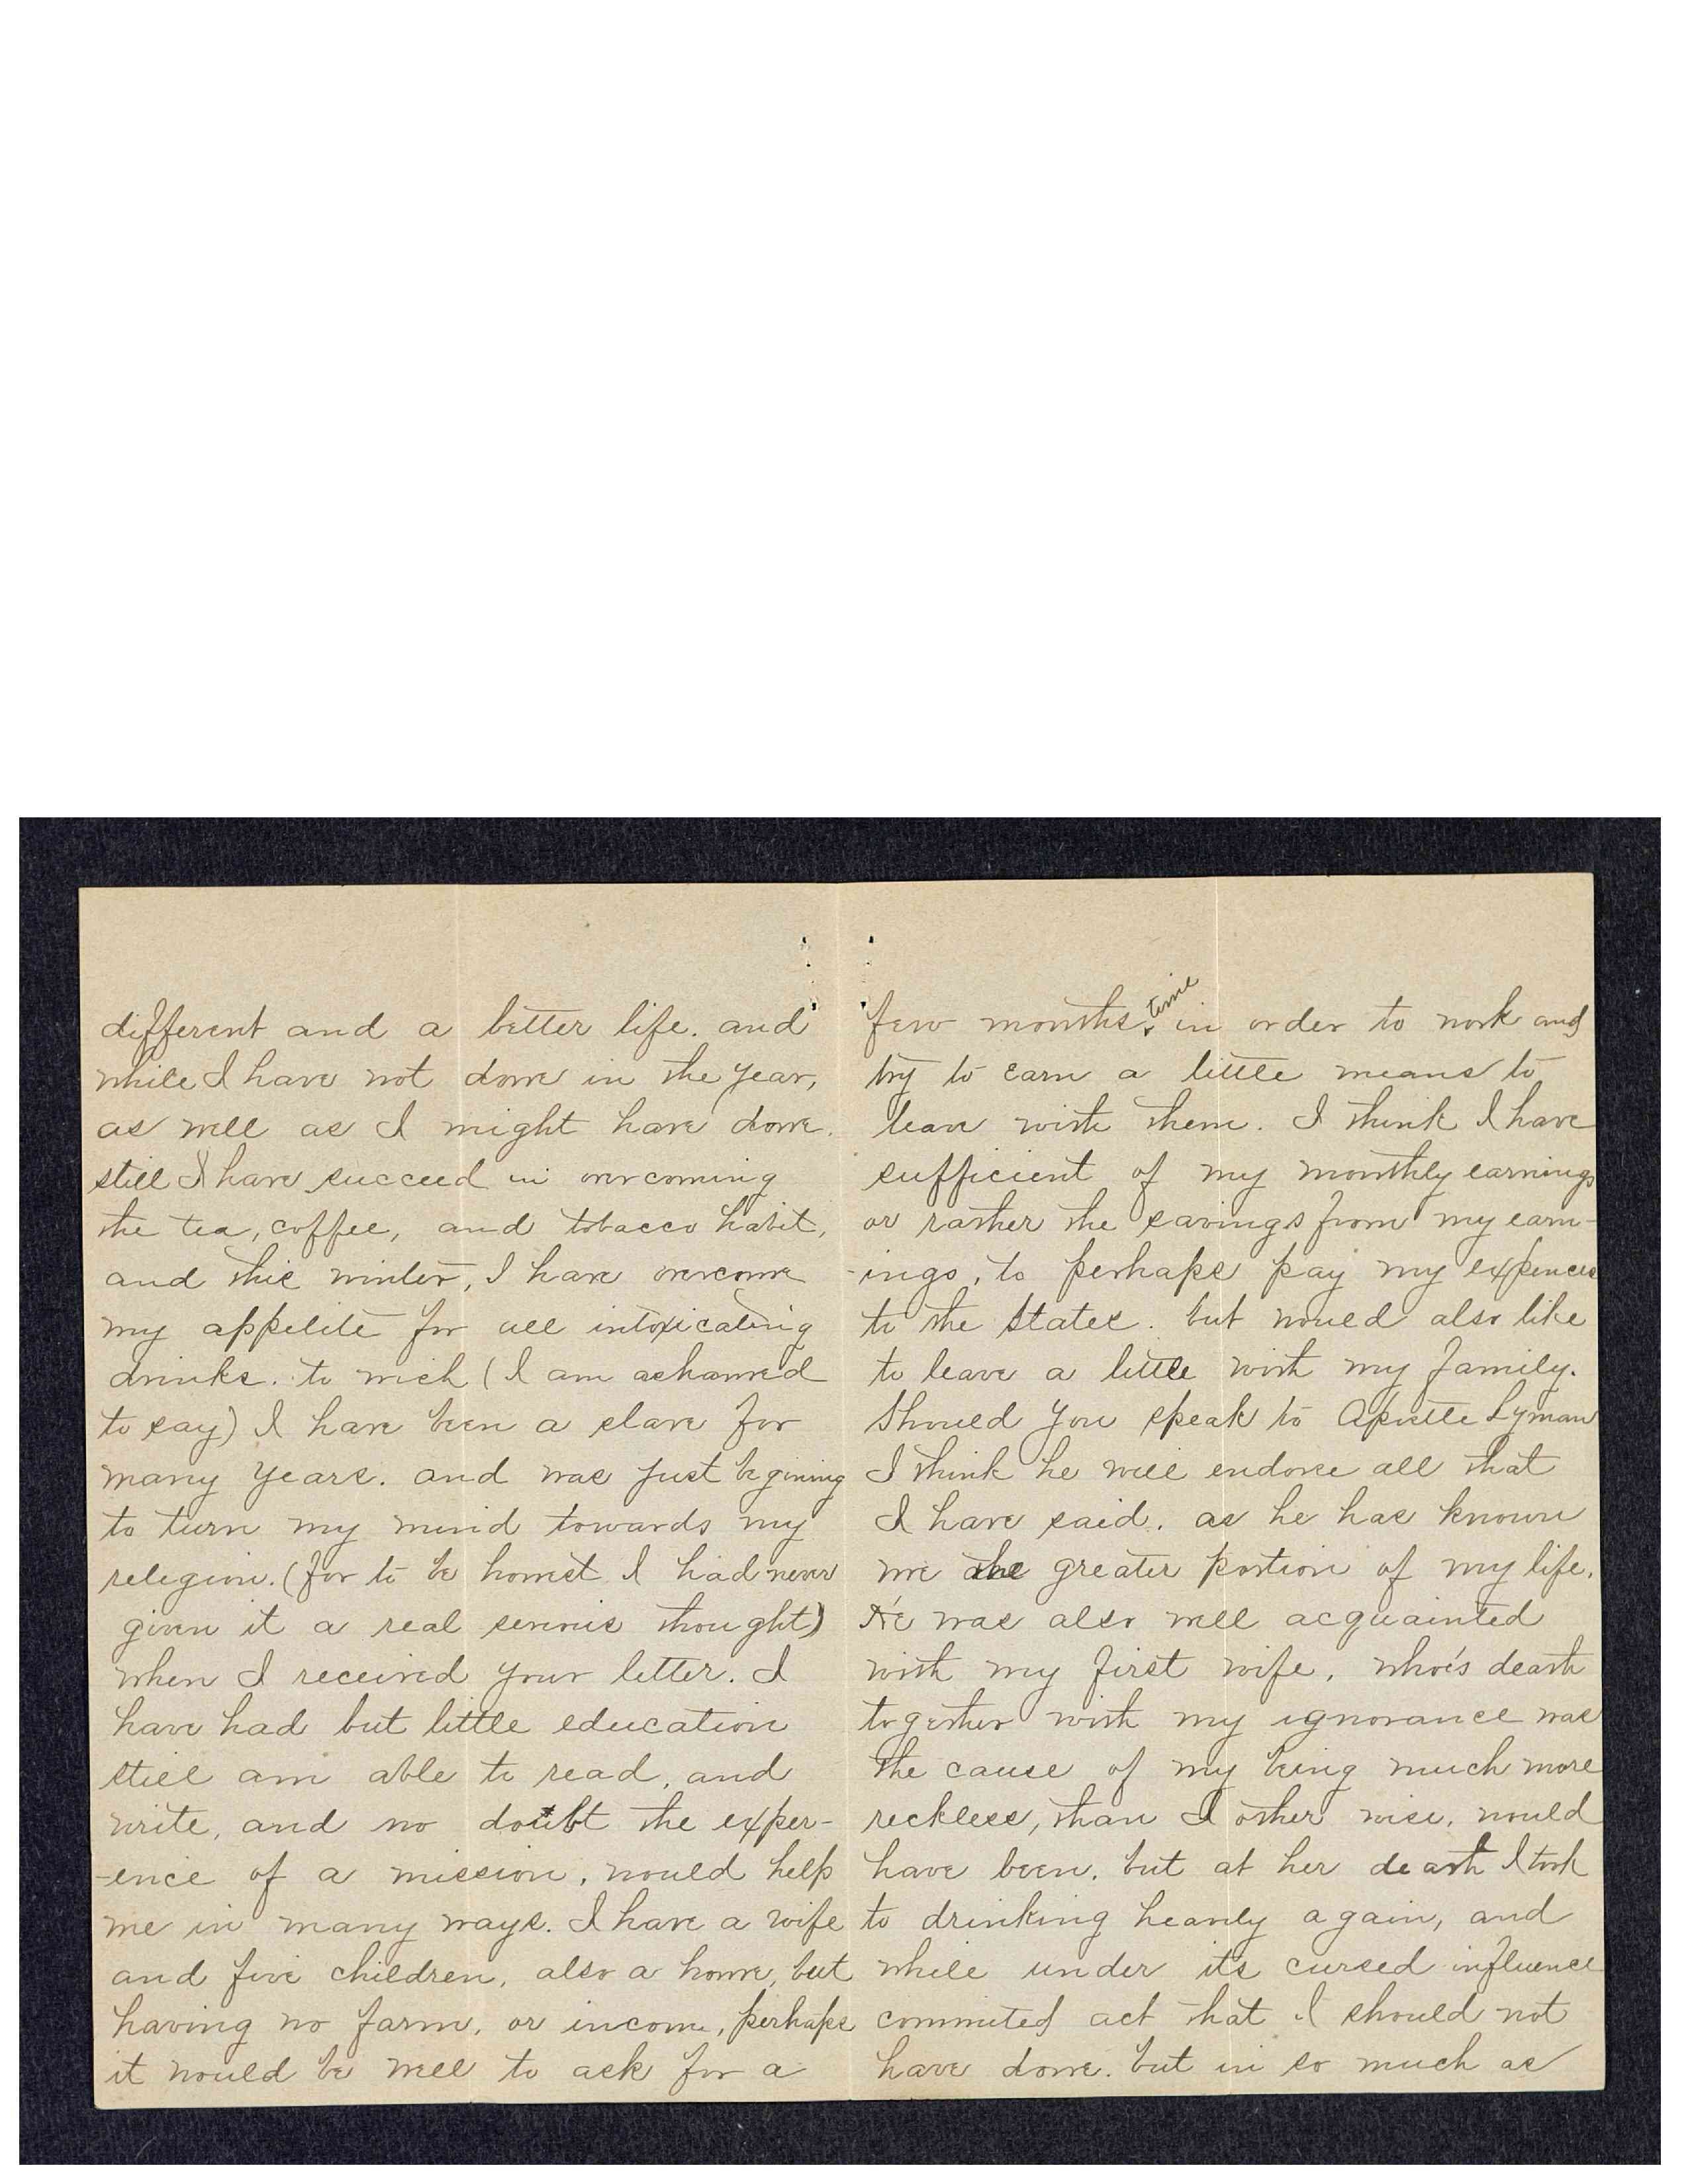 different and a better life. and
while I have not done in the year,
as well as I might have done.
still I have succeed in overcoming
the tea, coffee, and tobacco habit,
and this winter, I have overcome
my appetite for all intoxicating
drinks. to wich (I am ashamed
to say) I have been a slave for
many years. and was just begining
to turn my mind towards my
religion. (for to be honest I had never
given it a real serious thought)
when I received your letter. I
have had but little education
still am able to read, and
write, and no doubt the exper-
-ence of a mission, would help
me in many ways. I have a wife
and five children, also a home, but
having no farm, or income, perhaps
it would be well to ask for a
few months time in order to work and
try to earn a little means to
leave with them. I think I have
sufficient of my monthly earnings
or rather the savings from my earn-
-ings, to perhaps pay my expences
to the States. but would also like
to leave a little with my family.
Should you speak to Apostle Lyman
I think he will endorse all that
I have said. as he has known
me the greater portion of my life.
He was also well acquainted
with my first wife, who's death
together with my ignorance was
the cause of my being much more
reckless, than I other wise, would
have been. but at her death I took
to drinking heavily again, and
while under its cursed influence
commited act that I should not
have done. but in so much as